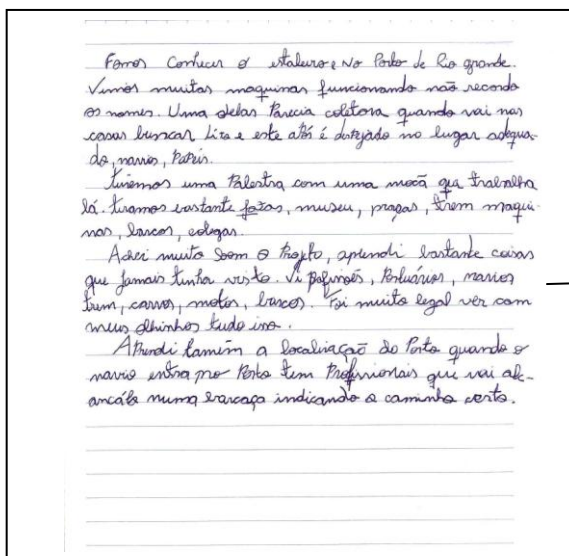 Fomos conhecer o estaleiro e no Porto de Rio grande.
Vimos muitas maquinas funcionando não recordo
os nomes. Uma delas Parecia coletora quando vai nas
casas buscar lixo e este após é despejado no lugar adequa-
do, navios,
tivemos uma Palestra com uma moça que trabalha
lá. tiramos bastante fotos, museu, praças, trem maqui-
nas, barcos, colegas.
Achei muito bom o Projeto, aprendi bastante coisas
que jamais tinha visto. Vi Portuários, navios
trem, carros, motos, barcos. Foi muito legal ver com
meus olhinhos tudo isso.
APrendi tamém a localização do Porto quando o
navio entra pro Porto tem Profissionais que vai al-
ancálo numa barcaça indicando o caminho certo.